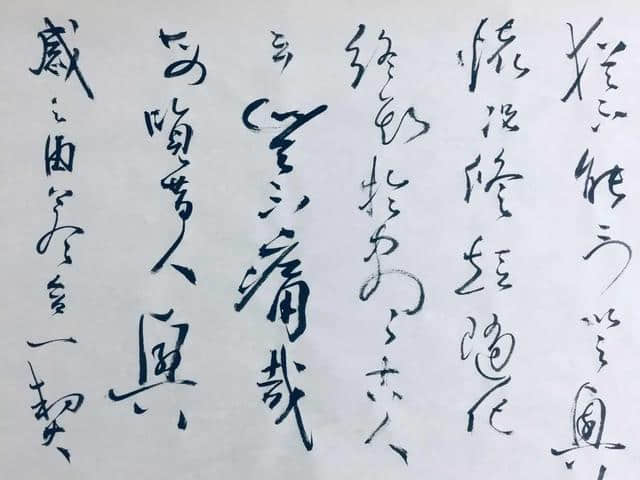 猶不能不以之興
懷況修短隨化
終期於盡古人
云豈不痛哉
每覽昔人興
感之由若合一契